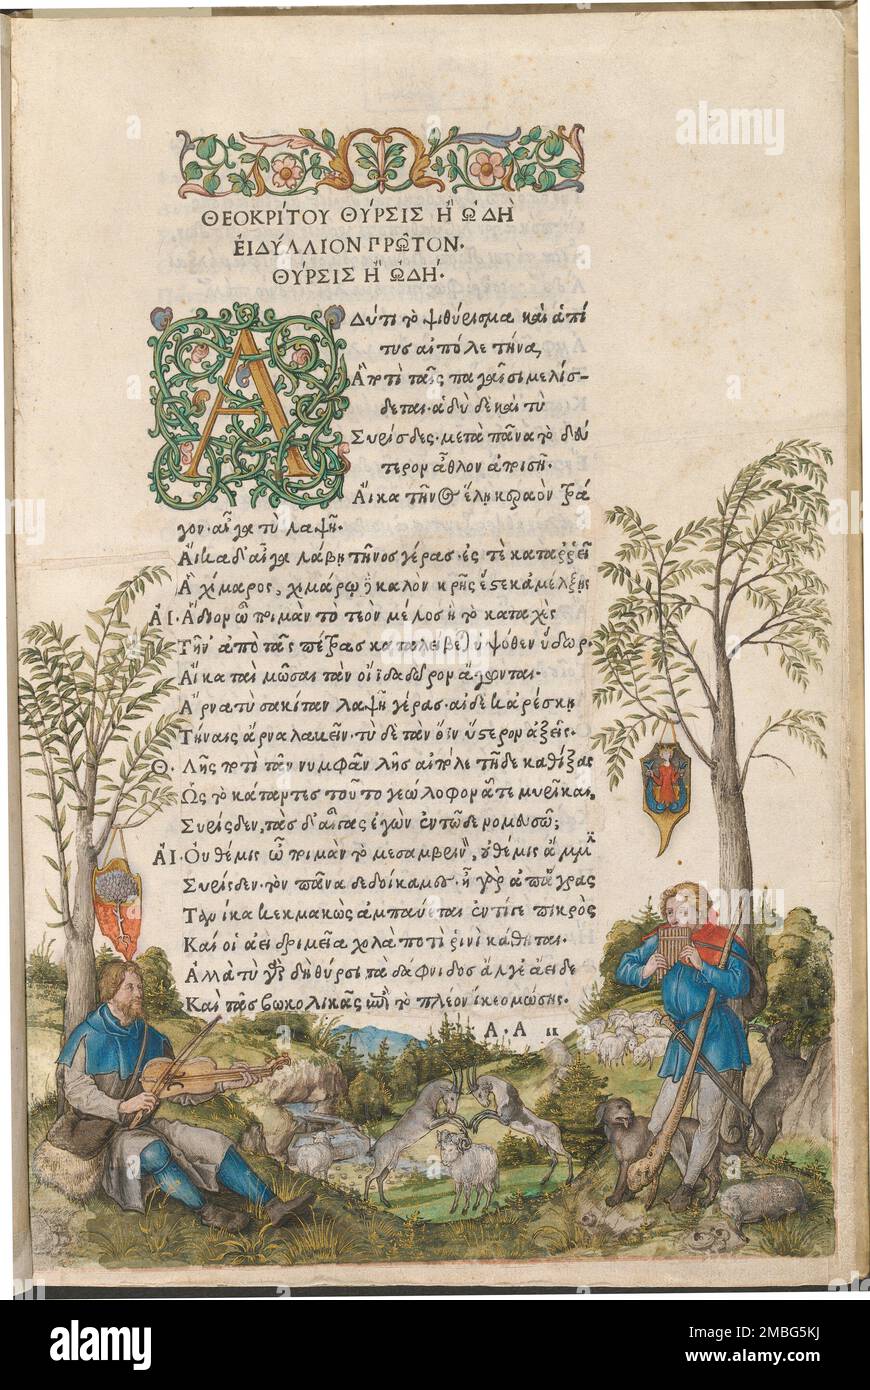 ΘΕΟΚΡΊΤΟΥ ΘΎΡΣΙΣ Ἢ ᾨΔῊ
ἘΙΔΎΛΛΙΟΝ ΠΡΩ͂ΤΟΝ.
ΘΎΡΣΙΣ Ἢ ᾨΔΉ.
ΑΔύτι τὸ ψιθύρισμα καὶ ἁ πί
τυς αἰπόλε τήνα,
Ἃ ποτὶ ταῖς παγαῖσι μελίσ-
δεται. ἁδὺ δὲ καὶ τὺ
Συρίσδες. μετὰ πᾶνα τὸ δεύ
τερον ἆθλον ἀποισῆ.
Αἴκα τῆνος ἕλῃ κεραὸν τρά
γον. αἶγα τὺ λαψῆ.
Αἴκα δ' αἶγα λάβῃ τῆνος γέρας. ἐς τὲ καταῤῥεῖ
Ἁ χίμαρος, χιμάρῳ δὲ καλὸν κρῆς ἔστε κ' ἀμέλξῃς
ΑΙ. Ἅδιον ὦ ποιμὰν τὸ τεὸν μέλος ἢ τὸ καταχὲς
Τῆν' ἀπὸ τᾶς πέτρας καταλείβεται ὑψόθεν ὕδωρ.
Αἴκα ταὶ μῶσαι τὰν οἴϊδα δῶρον ἄγωνται.
Ἄρνα τὺ σακίταν λαψῆ γέρας. αἰ δέ κ' ἀρέσκῃ
Τήναις ἄρνα λαβεῖν. τὺ δὲ τὰν ὄϊν ὕστερον ἀξεῖς.
Θ. Λῇς ποτὶ τᾶν νυμφᾶν λῇς αἰπόλε τῇδε καθίξας
Ὡς τὸ κάταντες τοῦτο γεώλοφον ᾇτε μυρῖκαι,
Συρίσδεν, τὰς δ' αἶγας ἐγὼν ἐν τῷδε νομευσῶ;
ΑΙ. Οὐ θέμις ὦ ποιμὰν τὸ μεσαμβρινὸν, οὐ θέμις ἄμμιν
Συρίσδεν. τὸν πᾶνα δεδοίκαμες. ἦ γὰρ ἀπ' ἄγρας
Τανίκα κεκμακὼς ἀμπαύεται ἐντί γε πικρὸς
Καί οἱ ἀεὶ δριμεῖα χολὰ ποτὶ ῥινὶ κάθηται.
Ἀλλὰ τὺ γὰρ δὴ θύρσι τὰ δάφνιδος ἄλγε' ἄειδες
Καὶ τᾶς βωκολικᾶς ἐπὶ τὸ πλέον ἵκεο μώσης.
Α.Α ιι
alamy
alamy
Image ID: 2MBG5KJ
www.alamy.com